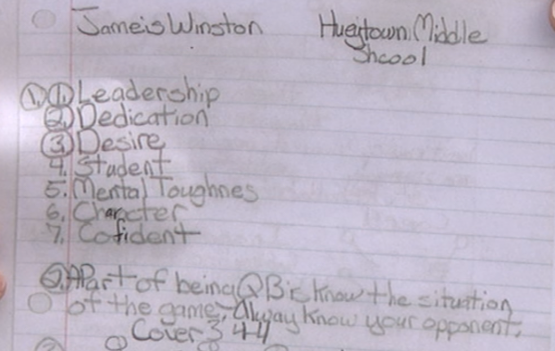 Jameis Winston Hueytown Middle
Shcool
1. 1. Leadership
2. Dedication
3. Desire
4. Student
5. Mental Toughnes
6. Charcter
7. Cofident
2. A Part of being QB is know the situation
of the game, Alway know your opponent.
Cover 3 44